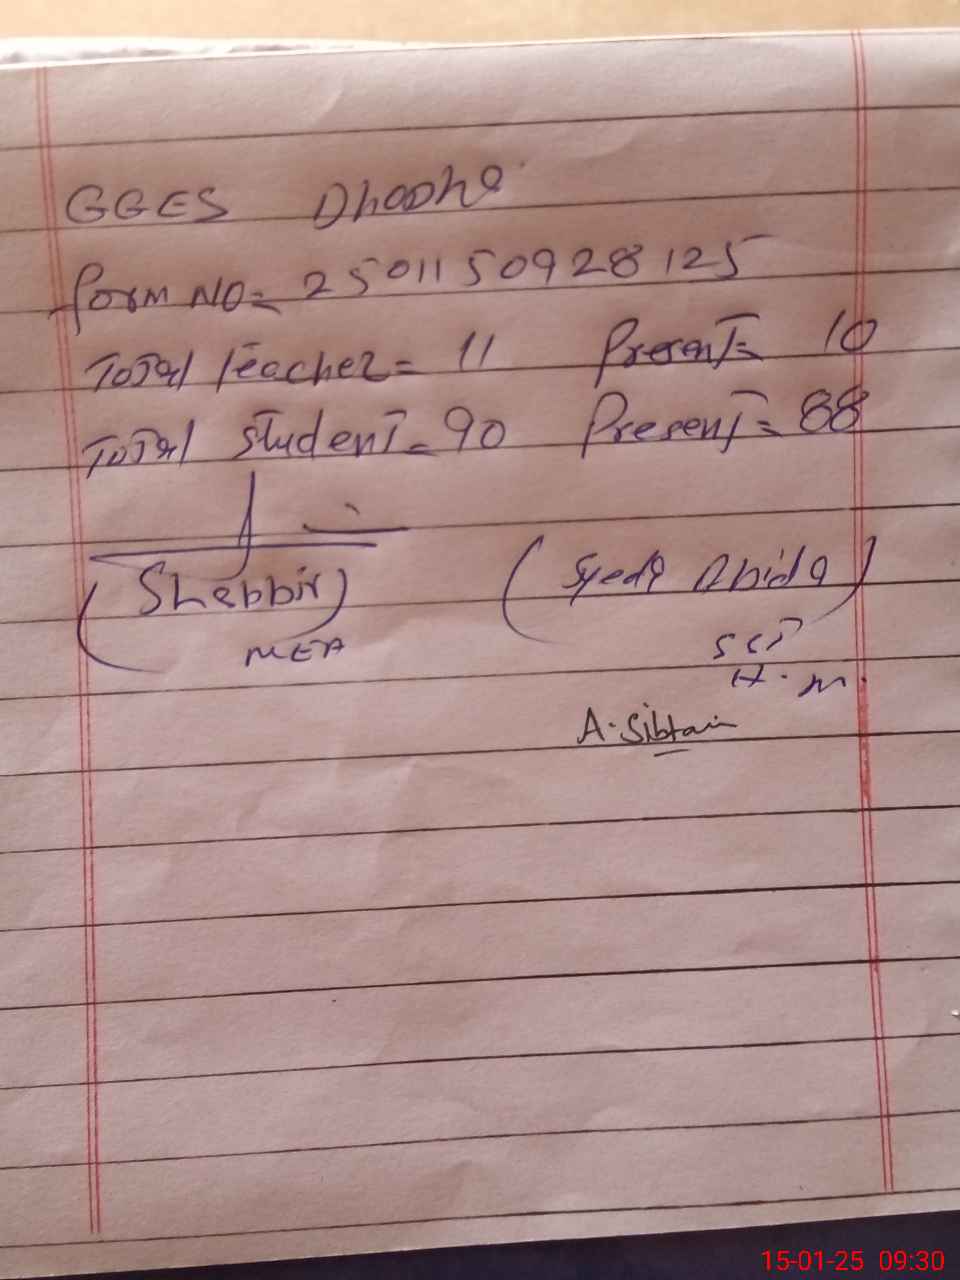 GGES Dhodha
Form NO = 2501150928125
Total teacher = 11 Present = 10
Total student = 90 Present = 88
(Shabbir) (Syeda Abida)
MEA SST
H.M.
A. Sibtain
15-01-25 09:30